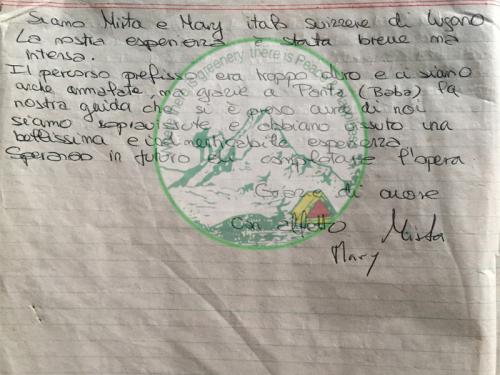 Siamo Mirta e Mary italo svizzere di Lugano
La nostra esperienza è stata breve ma
intensa.
Il percorso prefisso era troppo duro e ci siamo
anche ammalate, ma grazie a (Baba) la
nostra guida che si è preso cura di noi
siamo sopravissute e abbiamo vissuto una
bellissima e indimenticabile esperienza
Speranzo in futuro di completare l'opera.
Grazie di cuore
Con affetto Mirta
Mary
where there is greenery there is Peace